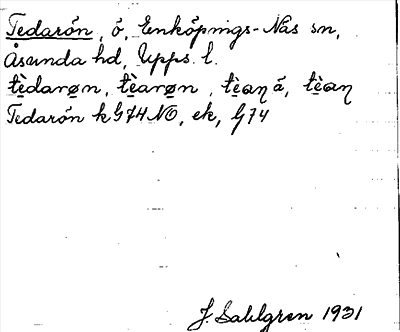 Tedarön, ö, Enköpings-Näs sn,
Åsunda hd, Upps. l.
tèdarøn, tèarøn, tèaŋ å, tèaŋ
Tedarön k G74 NO, ek, G74
J. Sahlgren 1931